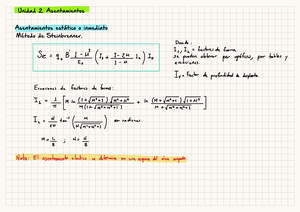 Unidad 2. Asentamientos
Asentamientos estático o inmediato
Método de Steinbrenner.
Se = q₀ B (1 - μ²) / Es (I₁ + (1 - 2μ) / (1 - μ) I₂) If
Donde:
I₁, I₂ = factores de forma
se pueden obtener por gráficos, por tablas y
ecuaciones.
If = factor de profundidad de desplante.
Ecuaciones de factores de forma:
I₁ = 1/π [ M ln ((1 + √(M²+1)) √(M²+N²)) / (M (1 + √(M²+N²+1))) + ln ((M + √(M²+1)) √(1+N²)) / (M + √(M²+N²+1)) ]
I₂ = N/2π tan⁻¹ ( M / (N √(M²+N²+1)) ) en radianes.
M = L/B ; N = H/B
Nota: El asentamiento elástico se determina en una esquina del área cargada.